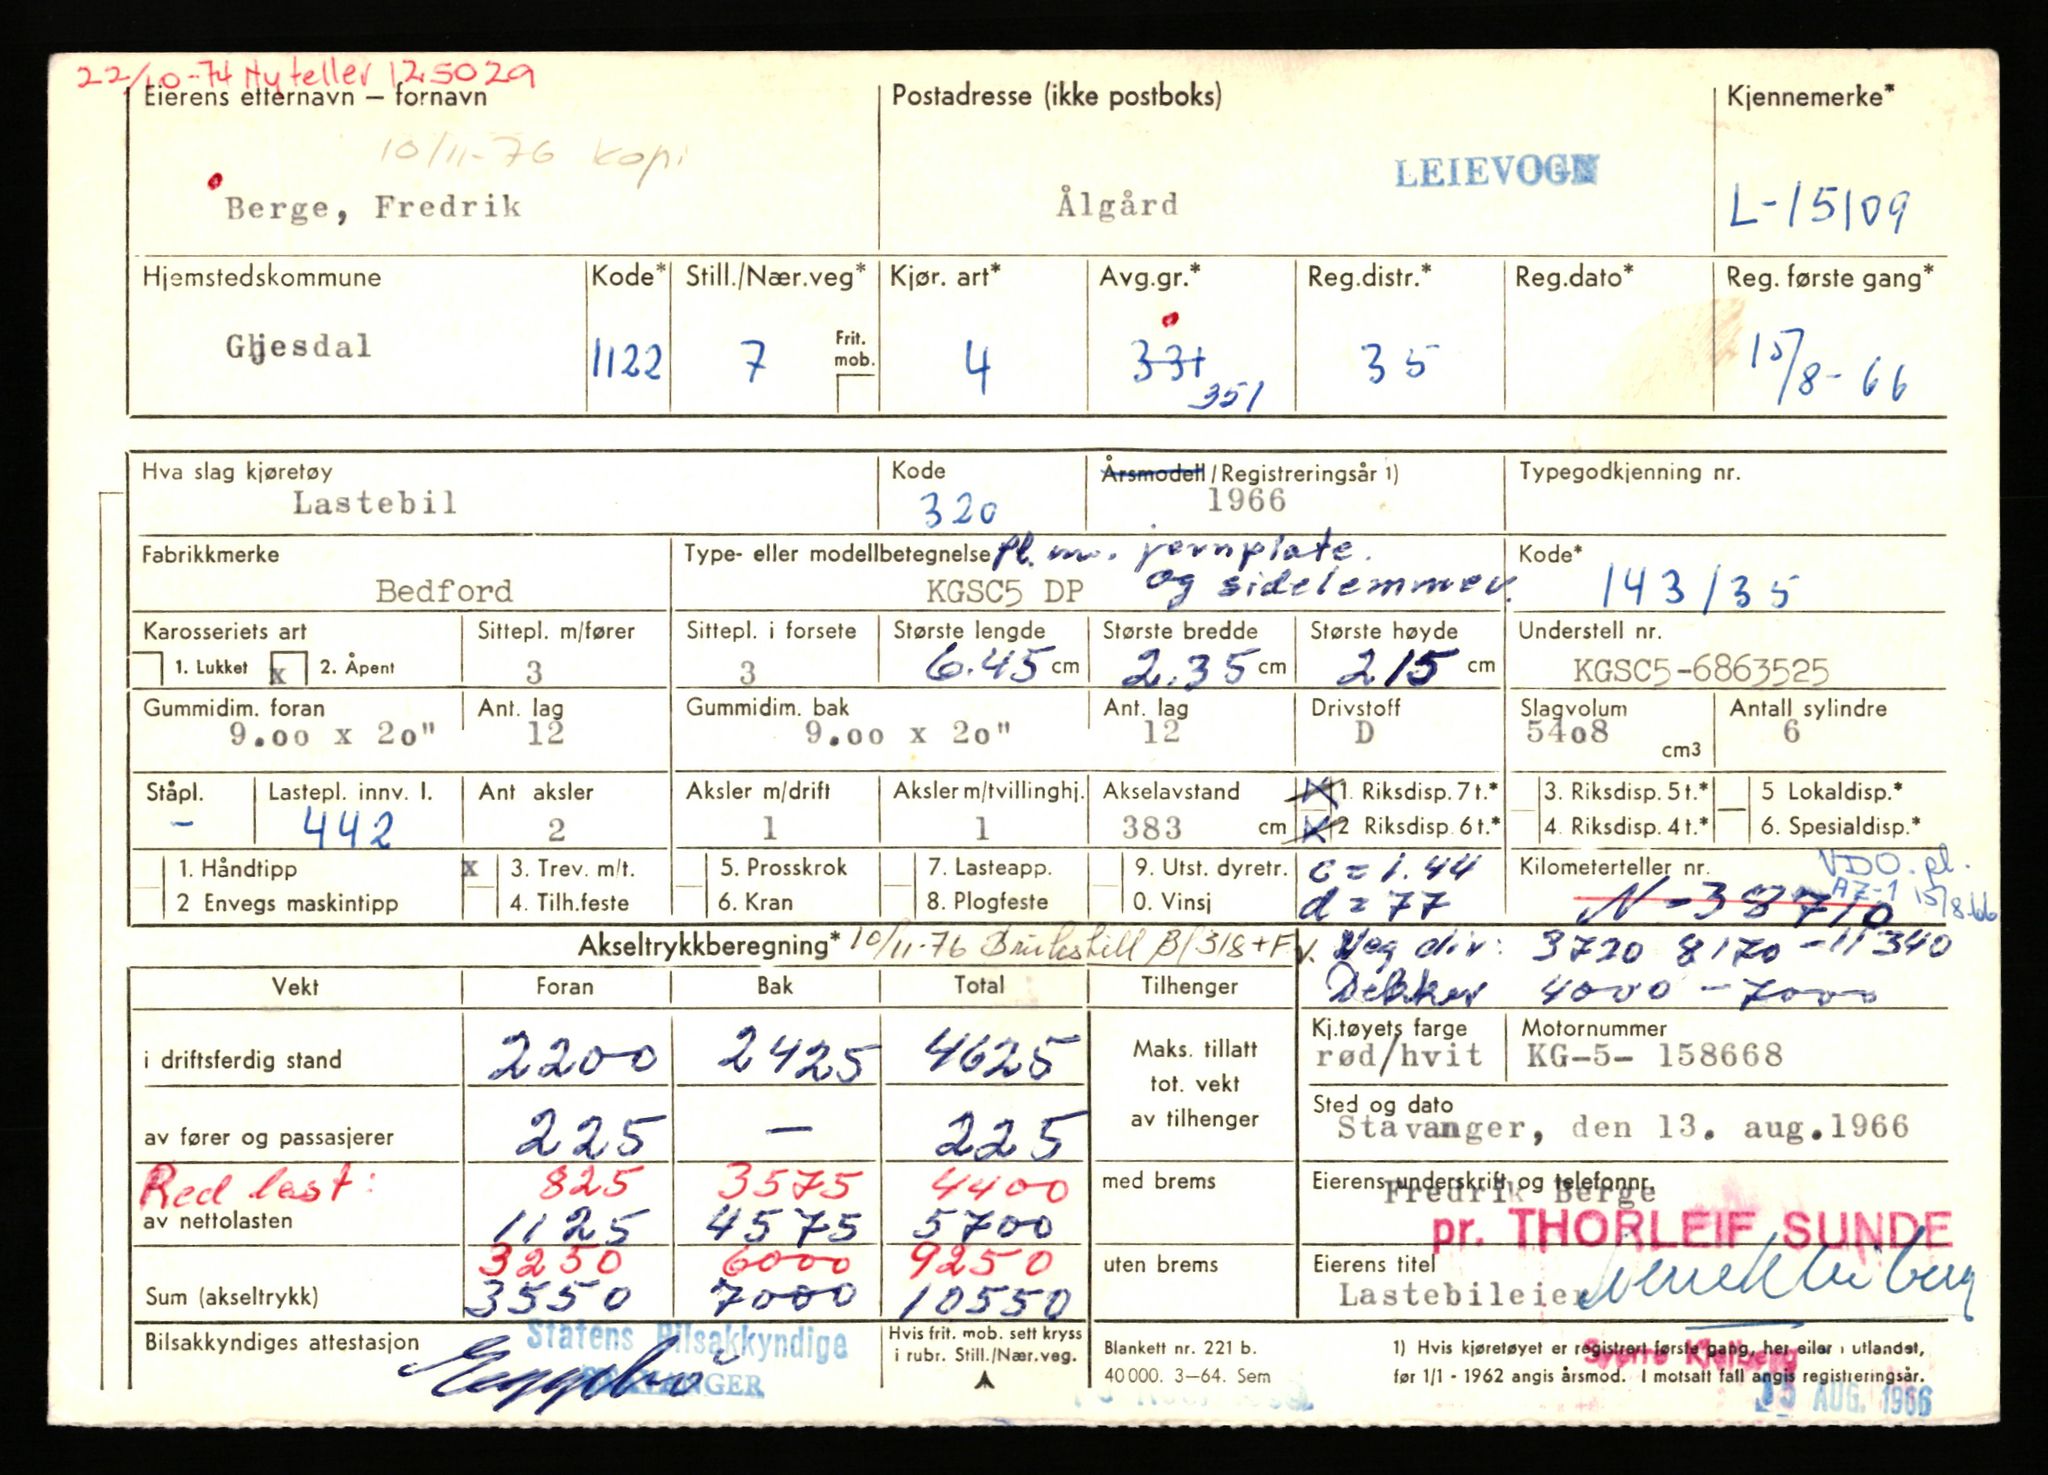 22/10-74 Ny teller 125029
Eierens etternavn — fornavn
Postadresse (ikke postboks)
Kjennemerke*
10/11-76 kopi
LEIEVOGN
Berge, Fredrik
Ålgård
L-15109
Hjemstedskommune
Kode*
Still./Nær.veg*
Kjør. art*
Avg.gr.*
Reg.distr.*
Reg.dato*
Reg. første gang*
Gjesdal
1122
7
Frit. mob.
4
331
351
35
15/8-66
Hva slag kjøretøy
Kode
Årsmodell/Registreringsår 1)
Typegodkjenning nr.
Lastebil
320
1966
Fabrikkmerke
Type- eller modellbetegnelse
pl. m. jernplate.
Kode*
Bedford
KGSC5 DP
og sidelemmer.
143135
Karosseriets art
Sittepl. m/fører
Sittepl. i forsete
Største lengde
Største bredde
Største høyde
Understell nr.
1. Lukket
x
2. Åpent
3
3
6.45 cm
2.35 cm
215 cm
KGSC5-6863525
Gummidim. foran
Ant. lag
Gummidim. bak
Ant. lag
Drivstoff
Slagvolum
Antall sylindre
9.00 x 20"
12
9.00 x 20"
12
D
5408 cm3
6
Ståpl.
Lastepl. innv. l.
Ant aksler
Aksler m/drift
Aksler m/tvillinghj.
Akselavstand
1. Riksdisp. 7 t.*
3. Riksdisp. 5 t.*
5 Lokaldisp.*
-
442
2
1
1
383 cm
2 Riksdisp. 6 t.*
4. Riksdisp. 4 t.*
6. Spesialdisp.*
1. Håndtipp
x
3. Trev. m/t.
5. Prosskrok
7. Lasteapp.
9. Utst. dyretr.
c = 1.44
Kilometerteller nr.
VDO. pl.
AZ-1
15/8.66
2 Envegs maskintipp
4. Tilh.feste
6. Kran
8. Plogfeste
0. Vinsj
d = 77
N-38710
Akseltrykkberegning*
10/11-76 Brukstill B/318+F
Veg dir: 3720 8170 - 11340
Vekt
Foran
Bak
Total
Tilhenger
Dekker 4000 - 7000
i driftsferdig stand
2200
2425
4625
Maks. tillatt
tot. vekt
av tilhenger
Kj.tøyets farge
Motornummer
rød/hvit
KG-5- 158668
av fører og passasjerer
225
—
225
Sted og dato
Stavanger, den 13. aug.1966
Red last:
825
3575
4400
med brems
Eierens underskrift og telefonnr.
Fredrik Berge
av nettolasten
1125
4575
5700
pr. THORLEIF SUNDE
3250
6000
9250
uten brems
Eierens titel
Sum (akseltrykk)
3550
7000
10550
Lastebileier
Bilsakkyndiges attestasjon
Statens Bilsakkyndige
STAVANGER
Hvis frit. mob. sett kryss
i rubr. Still./Nær.veg.
Blankett nr. 221 b.
40 000. 3—64. Sem
1) Hvis kjøretøyet er registrert første gang, her eller i utlandet,
før 1/1 - 1962 angis årsmod. I motsatt fall angis registreringsår.
15 AUG. 1966